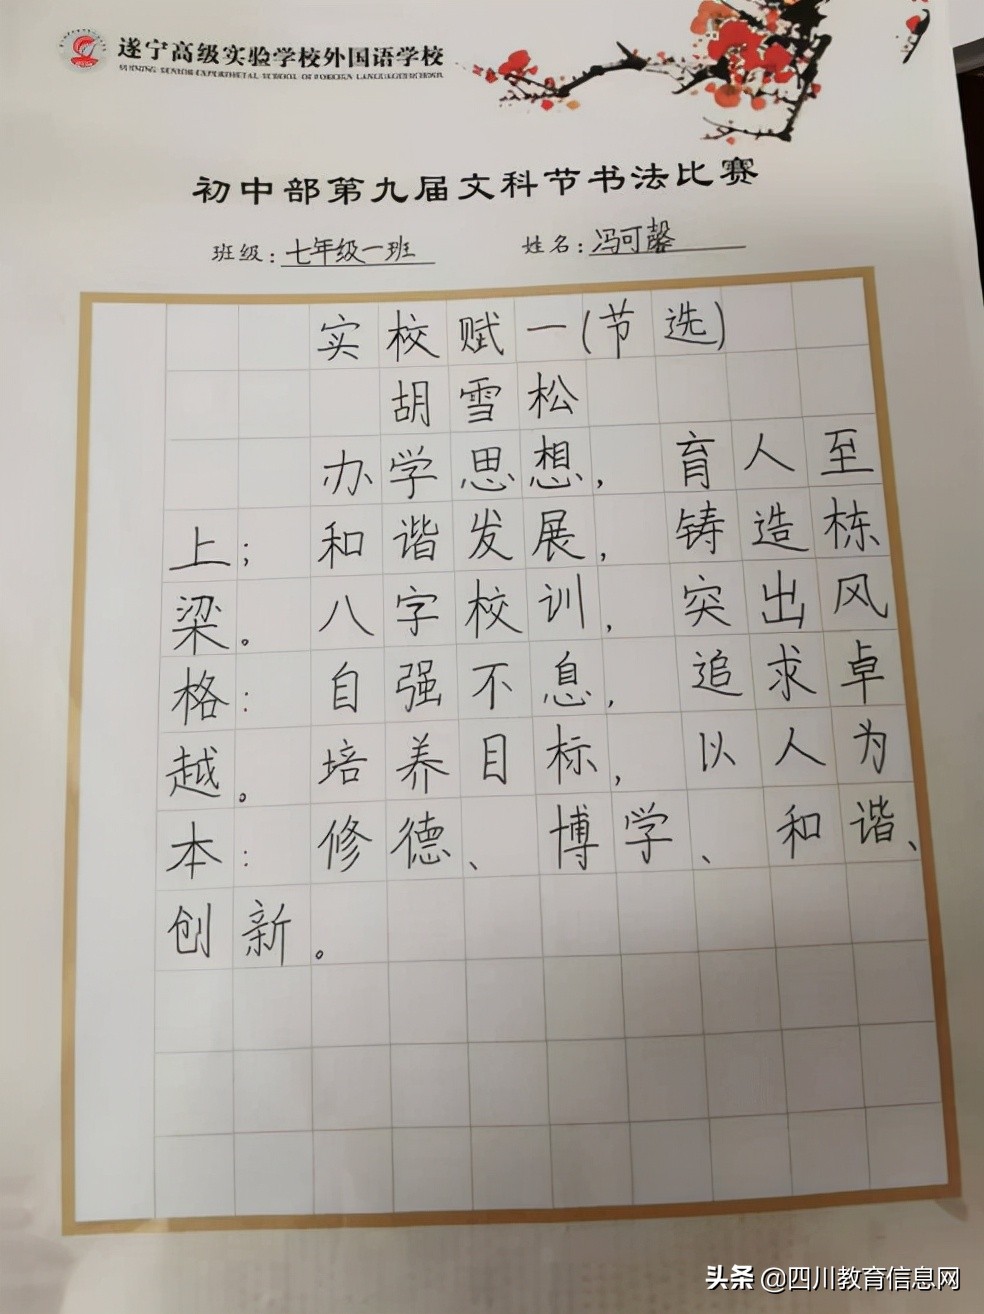 遂宁高级实验学校外国语学校
SUINING SENIOR EXPERIMETAL SCHOOL OF FOREIGN LANGUAGESCHOOL
初中部第九届文科节书法比赛
班级:七年级一班 姓名:冯可馨
实校赋一(节选)
胡雪松
办学思想,育人至
上;和谐发展,铸造栋
梁。八字校训,突出风
格:自强不息,追求卓
越。培养目标,以人为
本:修德、博学、和谐、
创新。
头条 @四川教育信息网